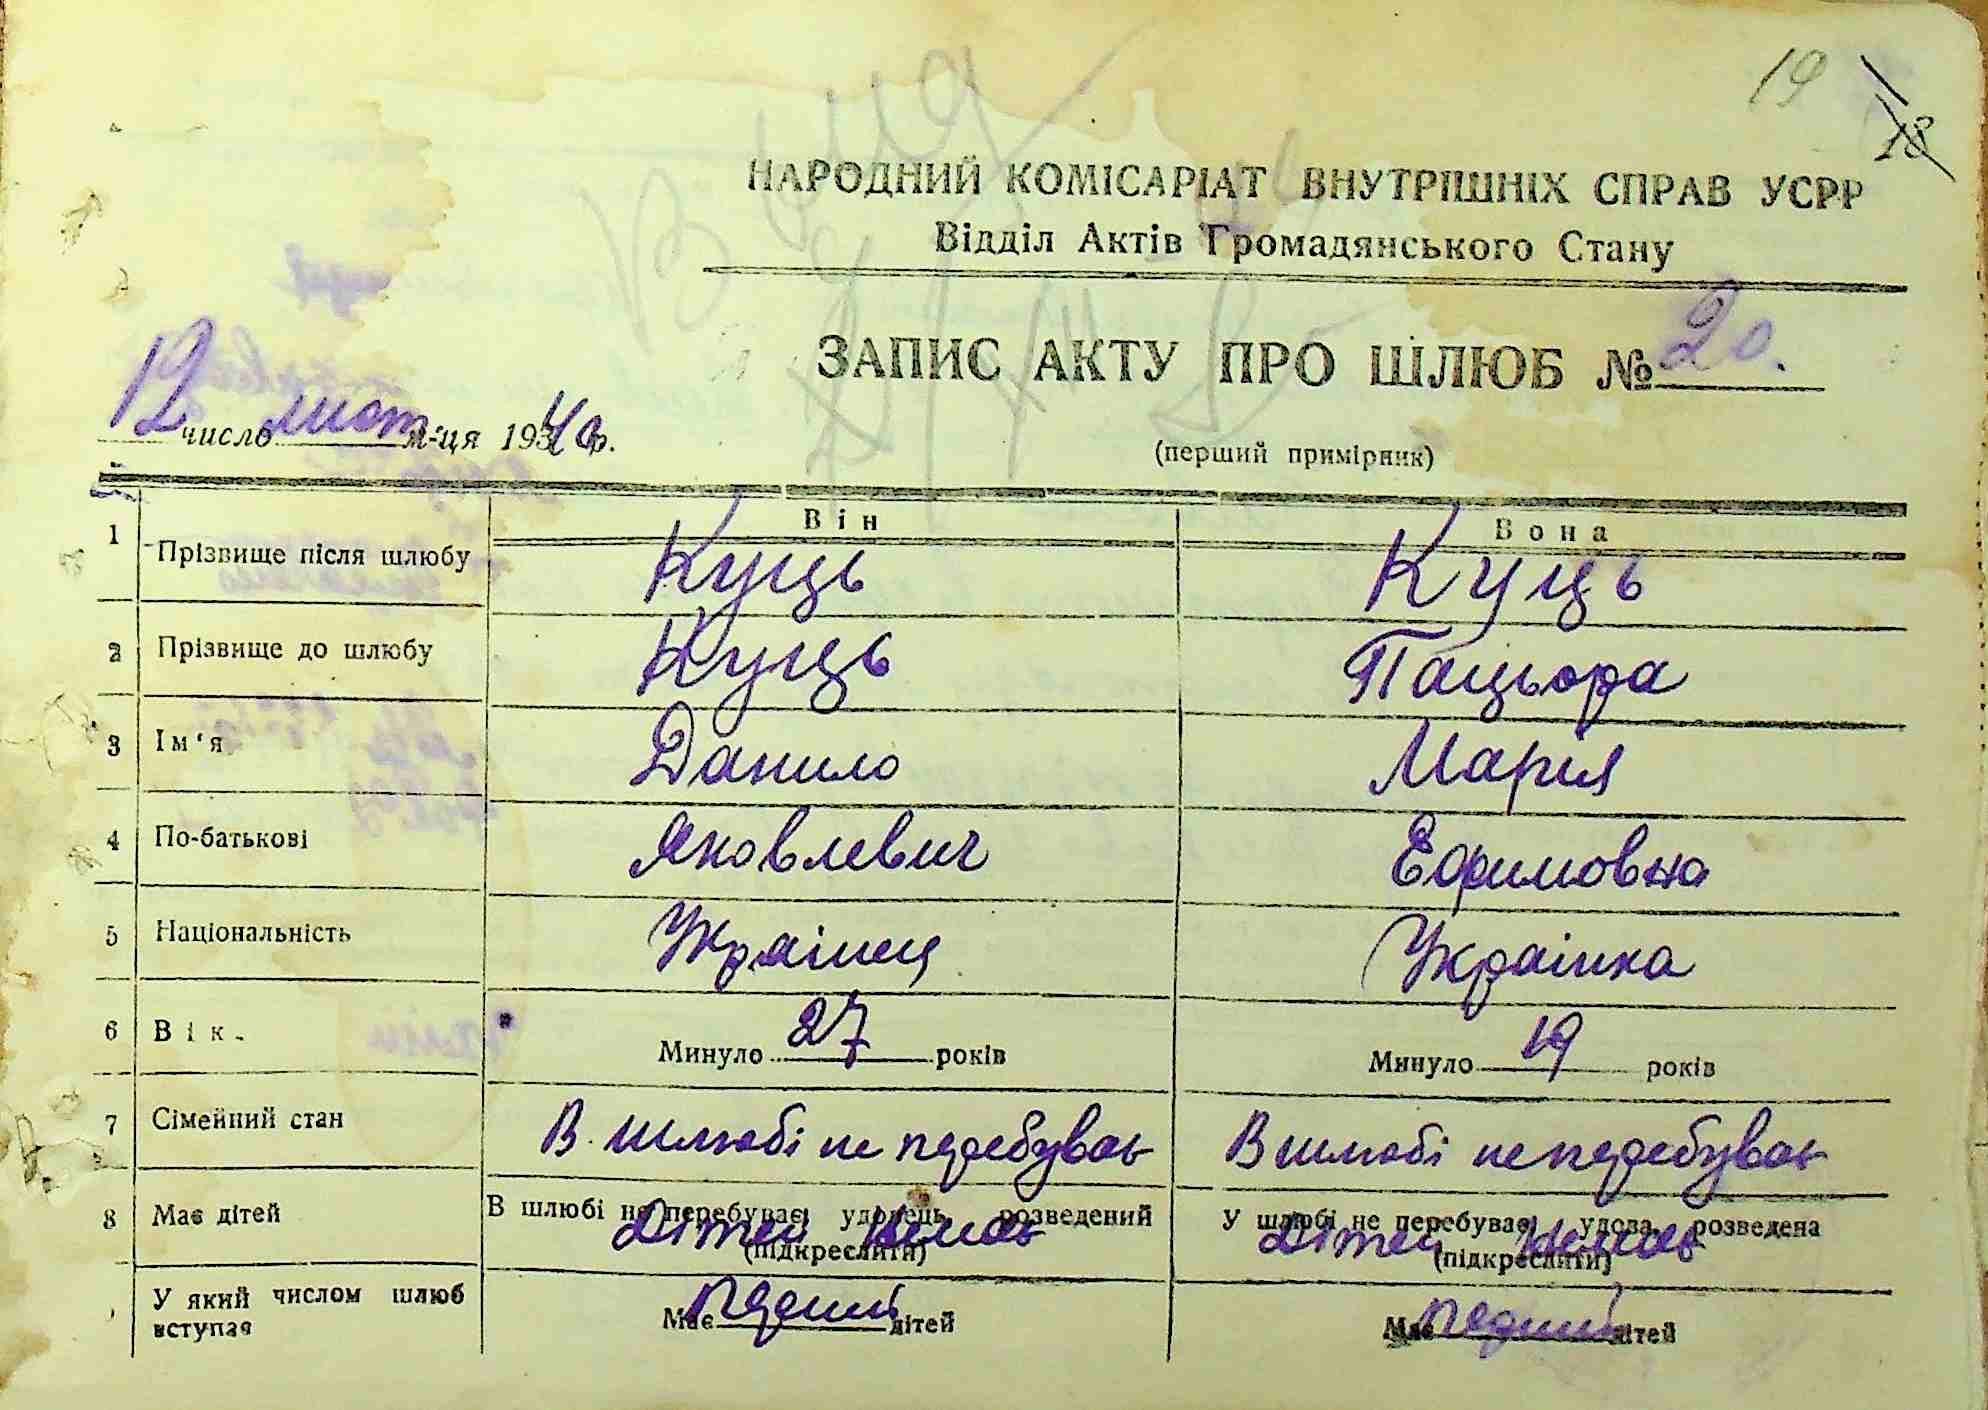 19
18
НАРОДНИЙ КОМІСАРІАТ ВНУТРІШНІХ СПРАВ УСРР
Відділ Актів Громадянського Стану
ЗАПИС АКТУ ПРО ШЛЮБ № 20.
12 число лист. м-ця 1940р.
(перший примірник)
Він Вона
1 Прізвище після шлюбу Куць Куць
2 Прізвище до шлюбу Куць Пацьора
3 Ім'я Данило Мария
4 По-батькові Яковлевич Ефимовна
5 Національність Украінец Украінка
6 Вік. Минуло 27 років Минуло 19 років
7 Сімейний стан В шлюбі не перебуває В шлюбі не перебуває
8 Має дітей В шлюбі не перебуває, удовець, розведений У шлюбі не перебуває, удова, розведена
Дітей немає Дітей немає
(підкреслити) (підкреслити)
У який числом шлюб вступає Має первий дітей Має первий дітей